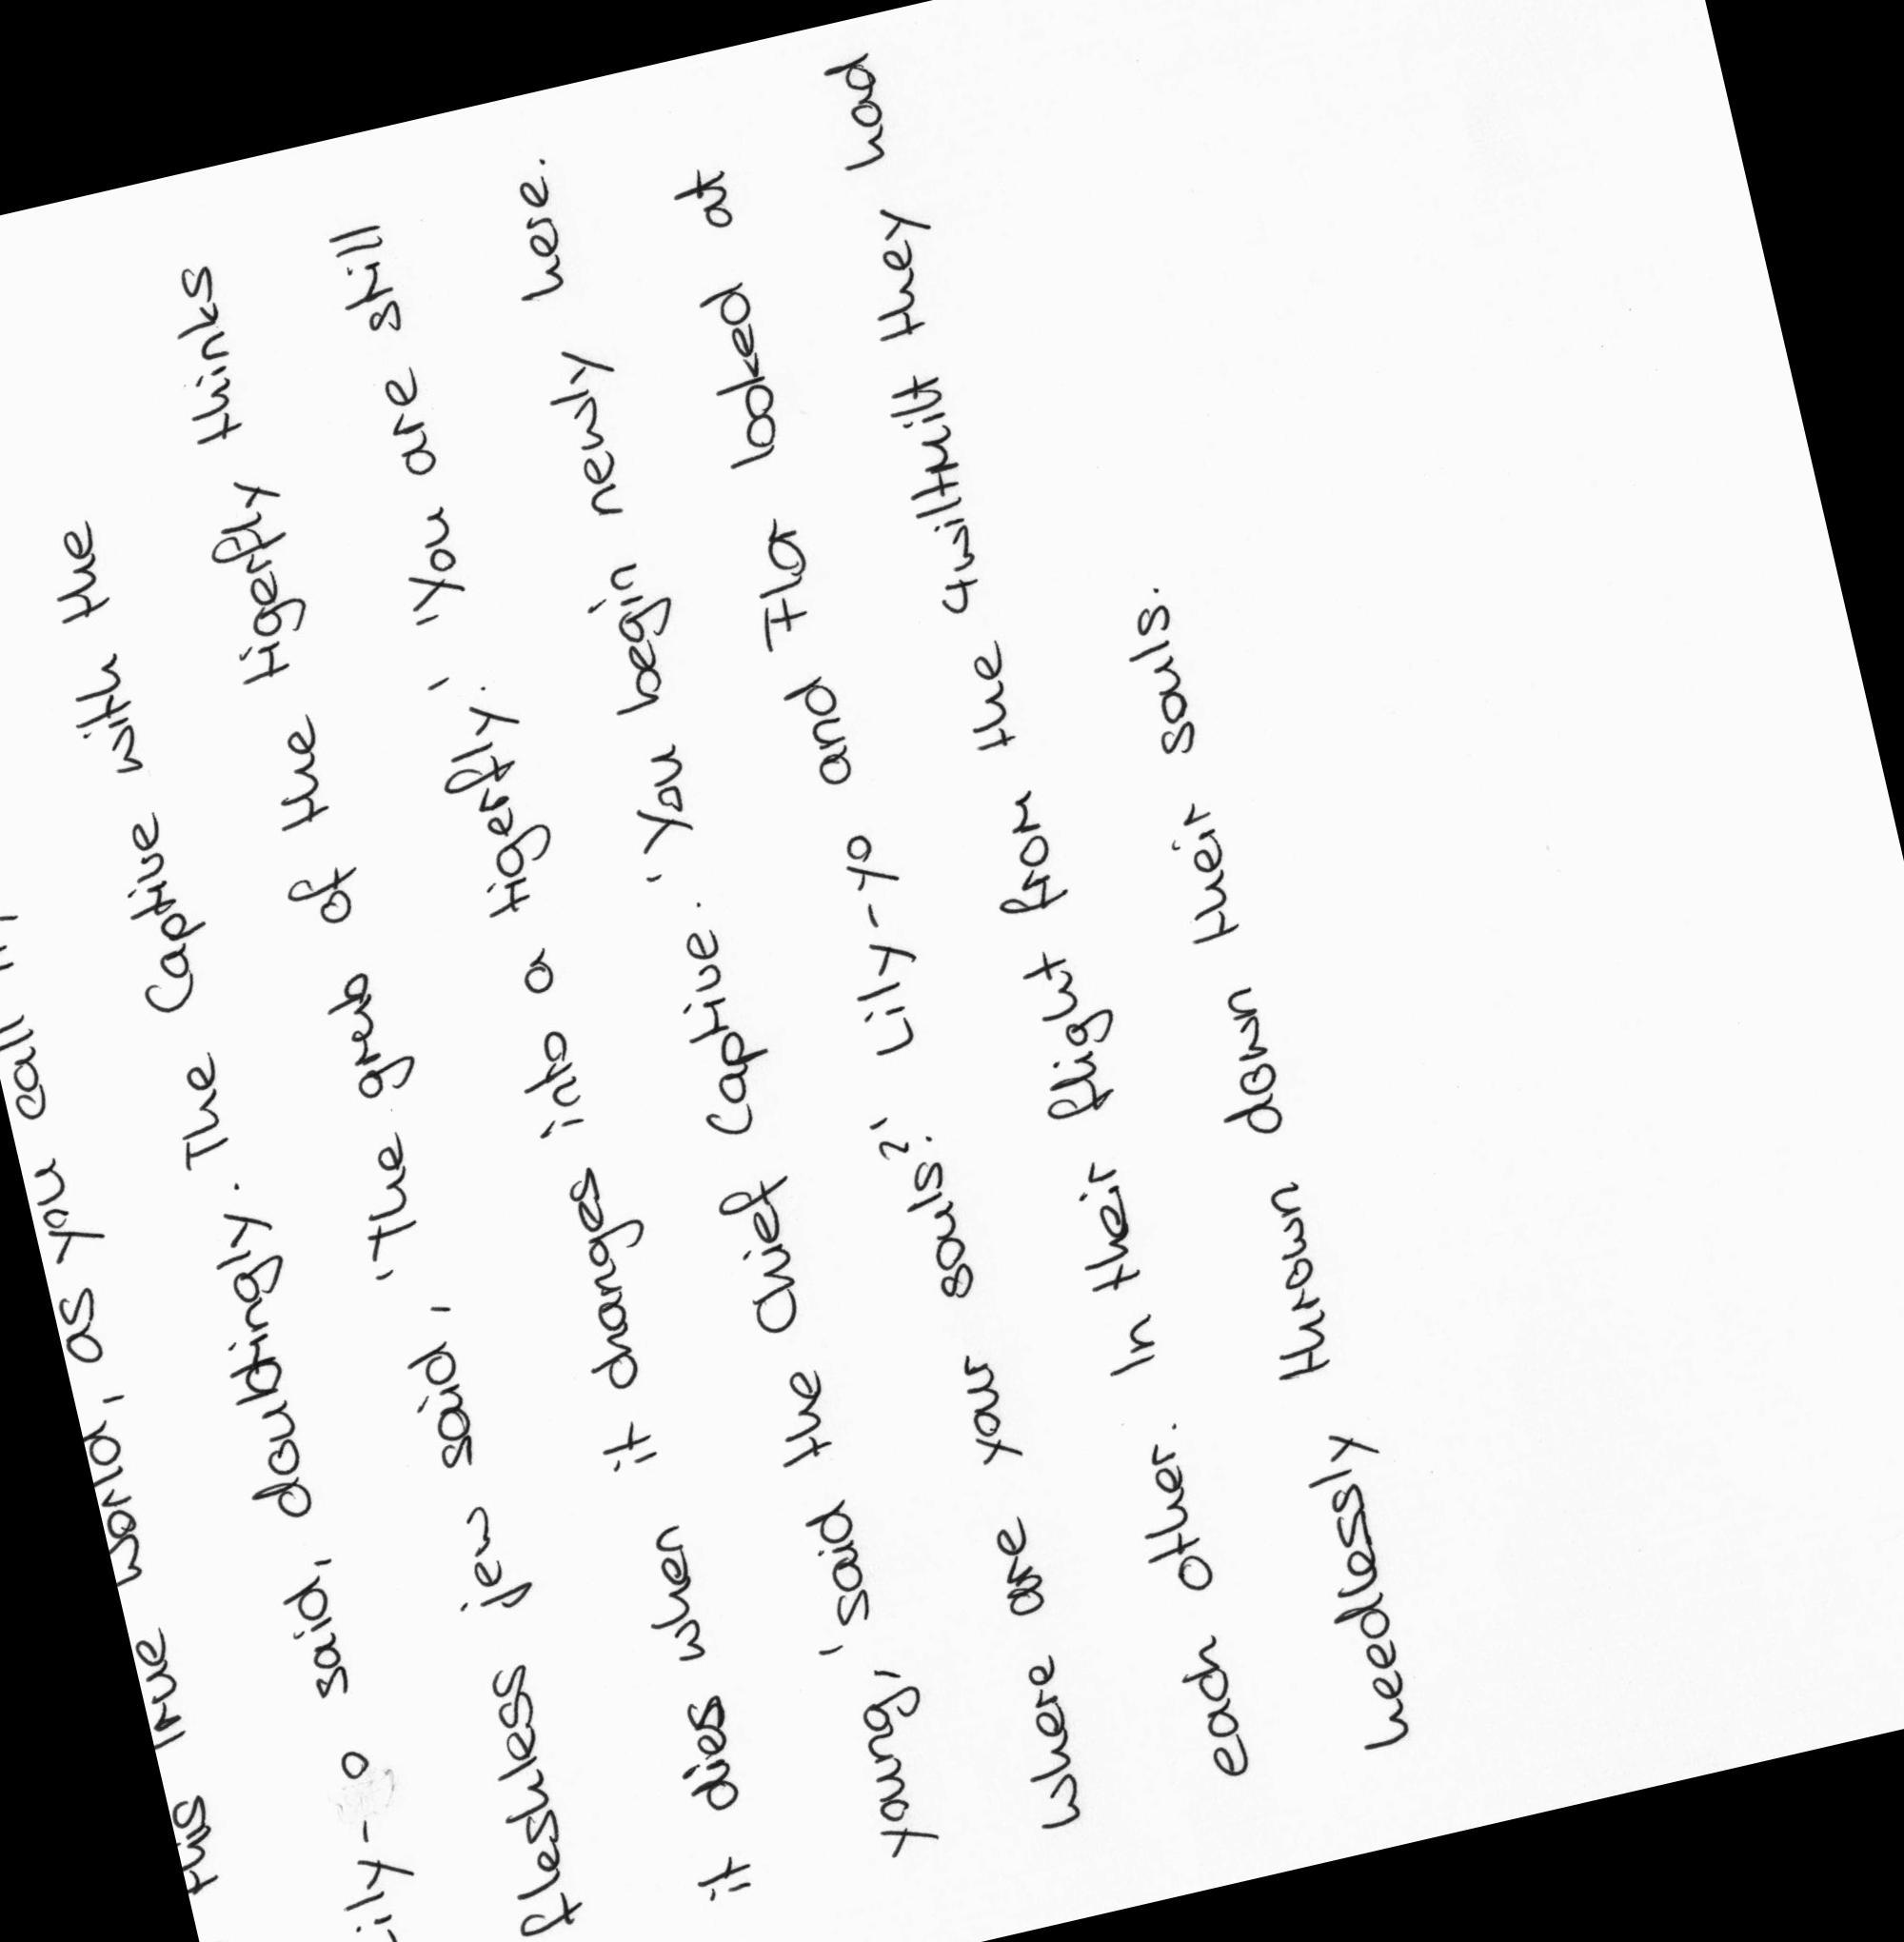 this true world, as you call it?'
Lily-o said, doubtingly. The Captive with the
fleshless jew said, 'The grub of the tigerfly thinks
it dies when it changes into a tigerfly.', 'You are still
young,' said the Chief Captive. 'You begin newly here.
where are your souls?' Lily-yo and Flor looked at
each other. In their flight from the twiltwilt they had
heedlessly thrown down their souls.